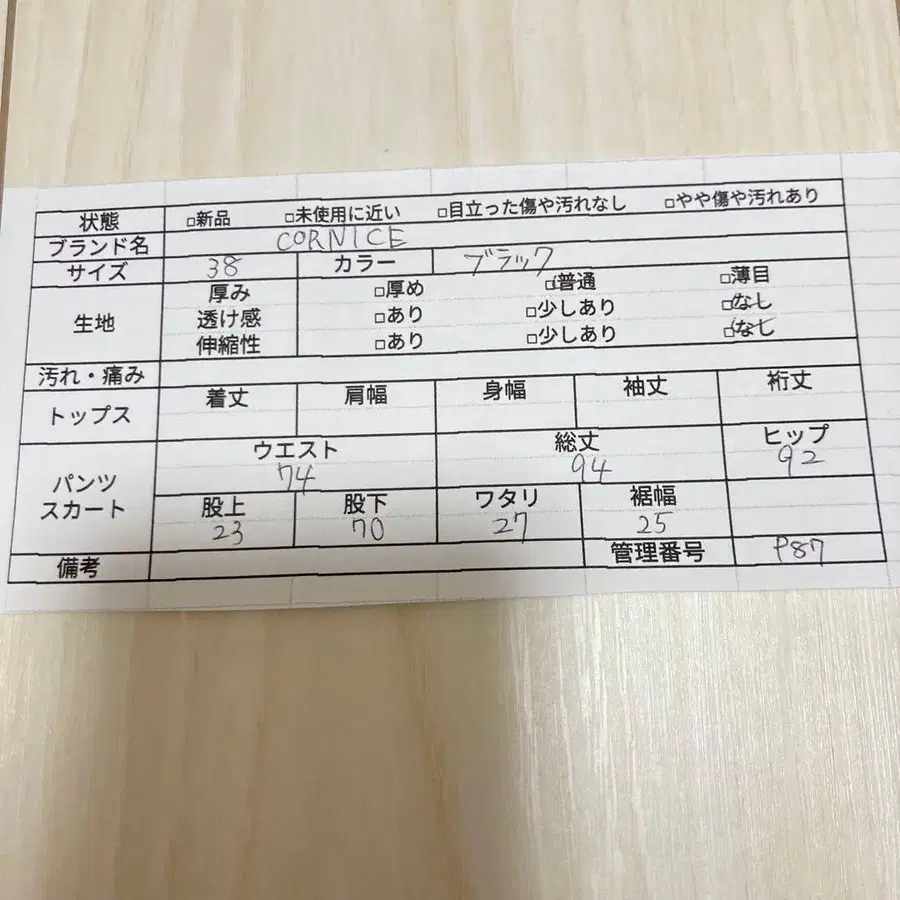 状態 □新品 □未使用に近い □目立った傷や汚れなし □やや傷や汚れあり
ブランド名 CORNICE
サイズ 38 カラー ブラック
生地 厚み □厚め □普通 □薄目
透け感 □あり □少しあり □なし
伸縮性 □あり □少しあり □なし
汚れ・痛み
トップス 着丈 肩幅 身幅 袖丈 裄丈
パンツ スカート ウエスト 総丈 ヒップ
74 94 92
股上 股下 ワタリ 裾幅
23 70 27 25
備考 管理番号 P87